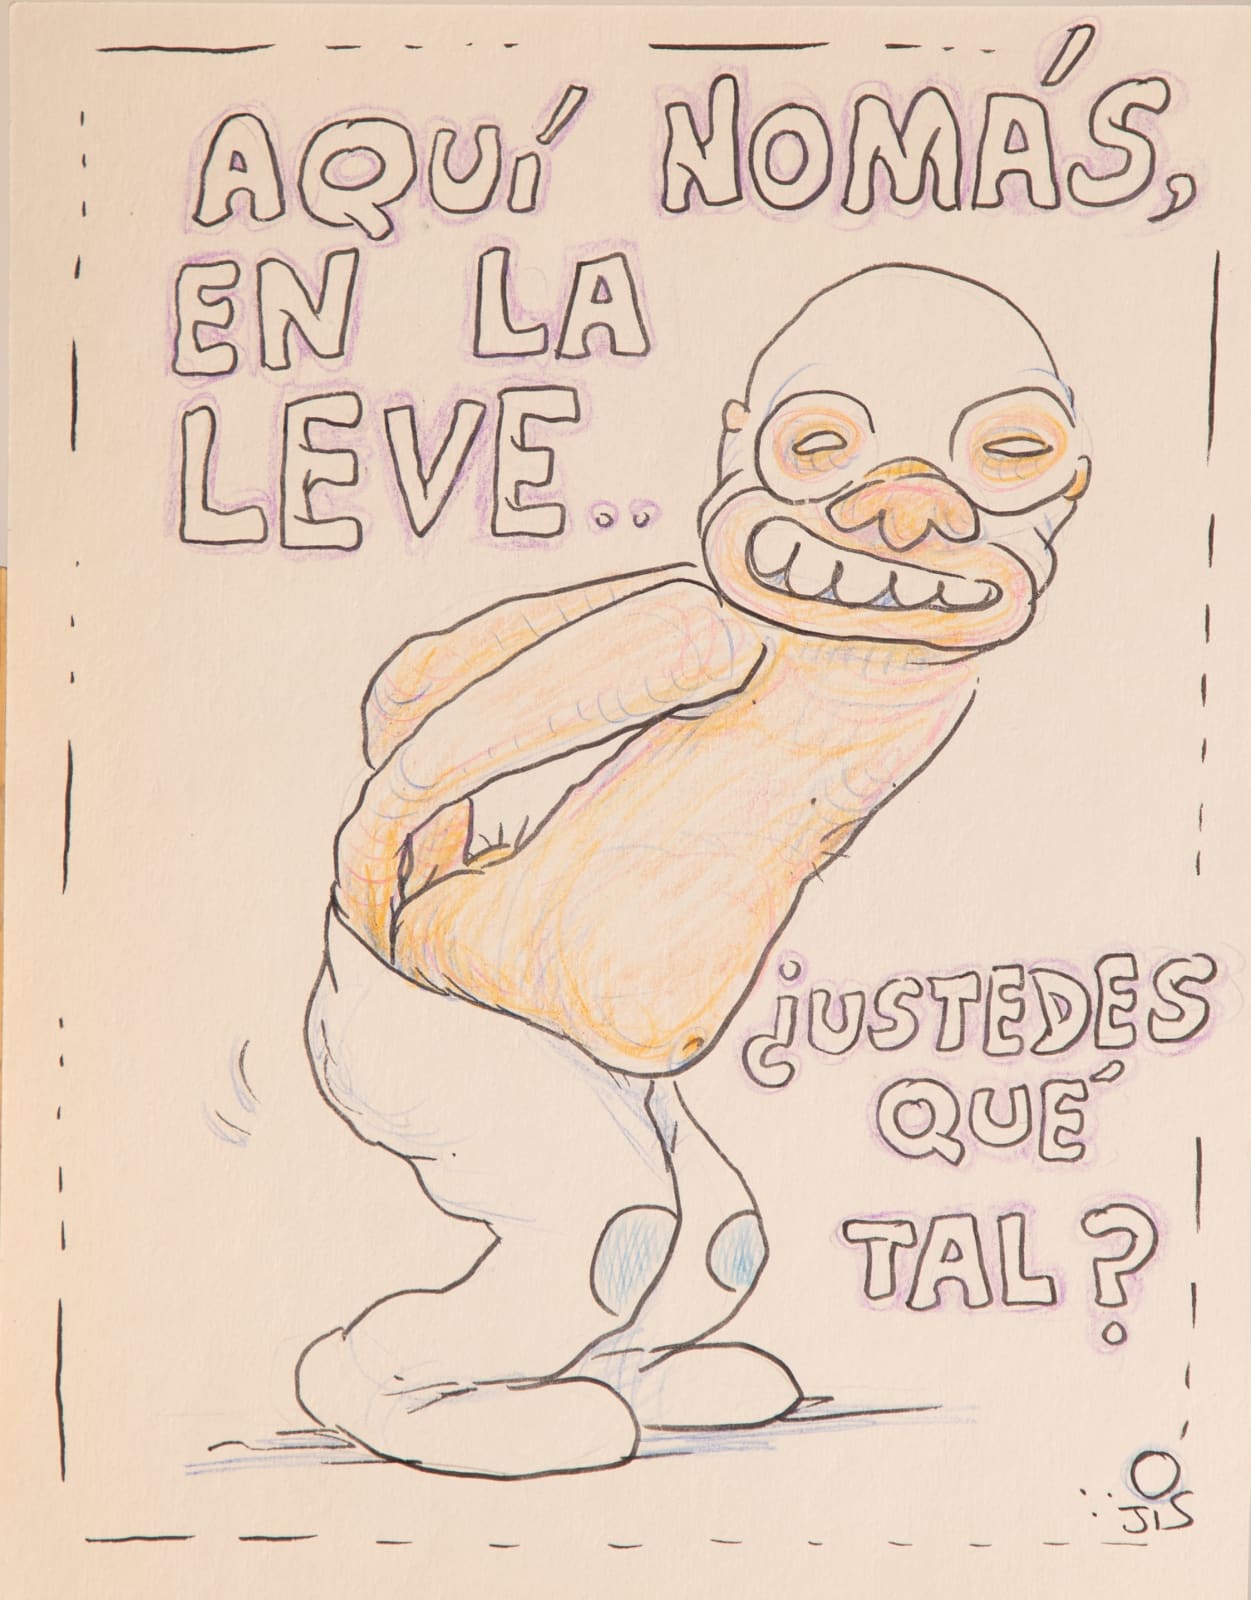 AQUÍ NOMÁS,
EN LA
LEVE..
¿USTEDES
QUÉ
TAL?
JIS